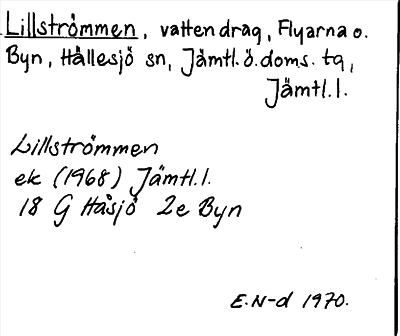 Lillströmmen, vattendrag, Flyarna o.
Byn, Hällesjö sn, Jämtl.ö.doms. tg,
Jämtl.l.
Lillströmmen
ek (1968) Jämtl.l.
18 G Håsjö 2e Byn
E.N-d 1970.